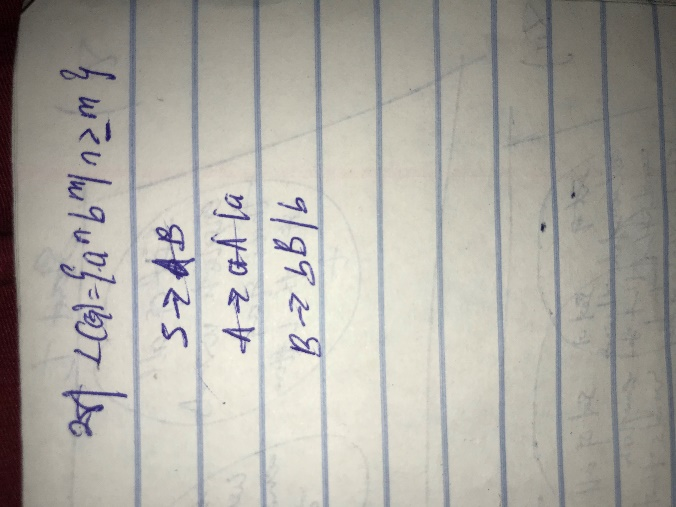 L(G)={aⁿbᵐ| n≥m}
S→AB
A→aA|a
B→bB|b